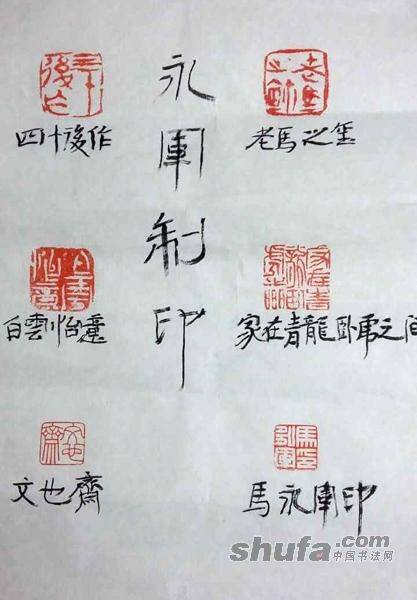 永軍制印
老馬之玺
家在青龍卧虎之间
馬永軍印
四十後作
白雲怡意
文也齋
shufa.com
中国书法网